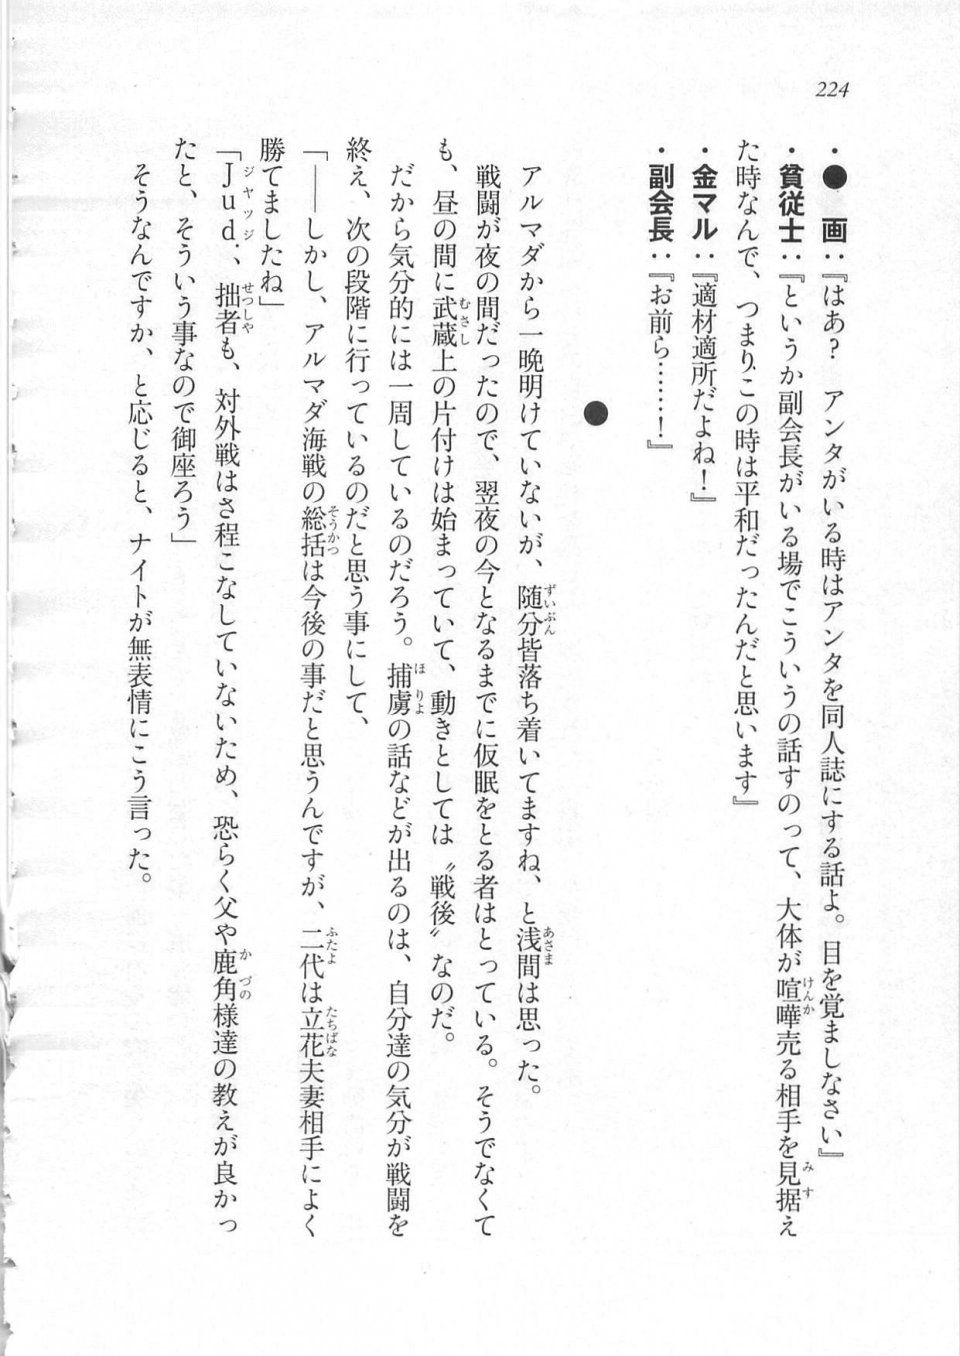 224
・●　画：『はあ？　アンタがいる時はアンタを同人誌にする話よ。目を覚ましなさい』
・貧従士：『というか副会長がいる場でこういうの話すのって、大体が喧嘩売る相手を見据え
た時なんで、つまりこの時は平和だったんだと思います』
・金マル：『適材適所だよね！』
・副会長：『お前ら……！』
●
アルマダから一晩明けていないが、随分皆落ち着いてますね、と浅間は思った。
戦闘が夜の間だったので、翌夜の今となるまでに仮眠をとる者はとっている。そうでなくて
も、昼の間に武蔵上の片付けは始まっていて、動きとしては〝戦後〟なのだ。
だから気分的には一周しているのだろう。捕虜の話などが出るのは、自分達の気分が戦闘を
終え、次の段階に行っているのだと思う事にして、
「――しかし、アルマダ海戦の総括は今後の事だと思うんですが、二代は立花夫妻相手によく
勝てましたね」
「Ｊｕｄ．、拙者も、対外戦はさ程こなしていないため、恐らく父や鹿角様達の教えが良かっ
たと、そういう事なので御座ろう」
そうなんですか、と応じると、ナイトが無表情にこう言った。